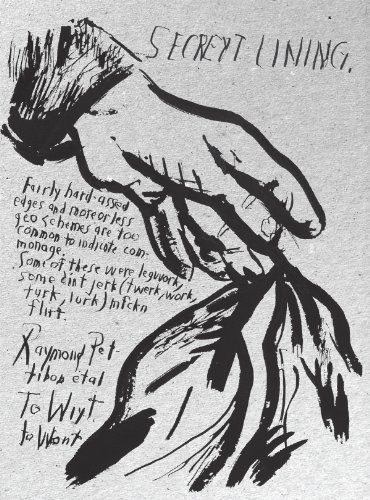 SECREYT LINING.
Fairly hard-assed
edges and more or less
geo schemes are too
common to indicate com-
monage.
Some of these were legwork,
some ein't jerk (twerk, work,
turk, lurk) mfckn
flirt.
Raymond Pet-
tibon etal
To Wiyt
to Wont